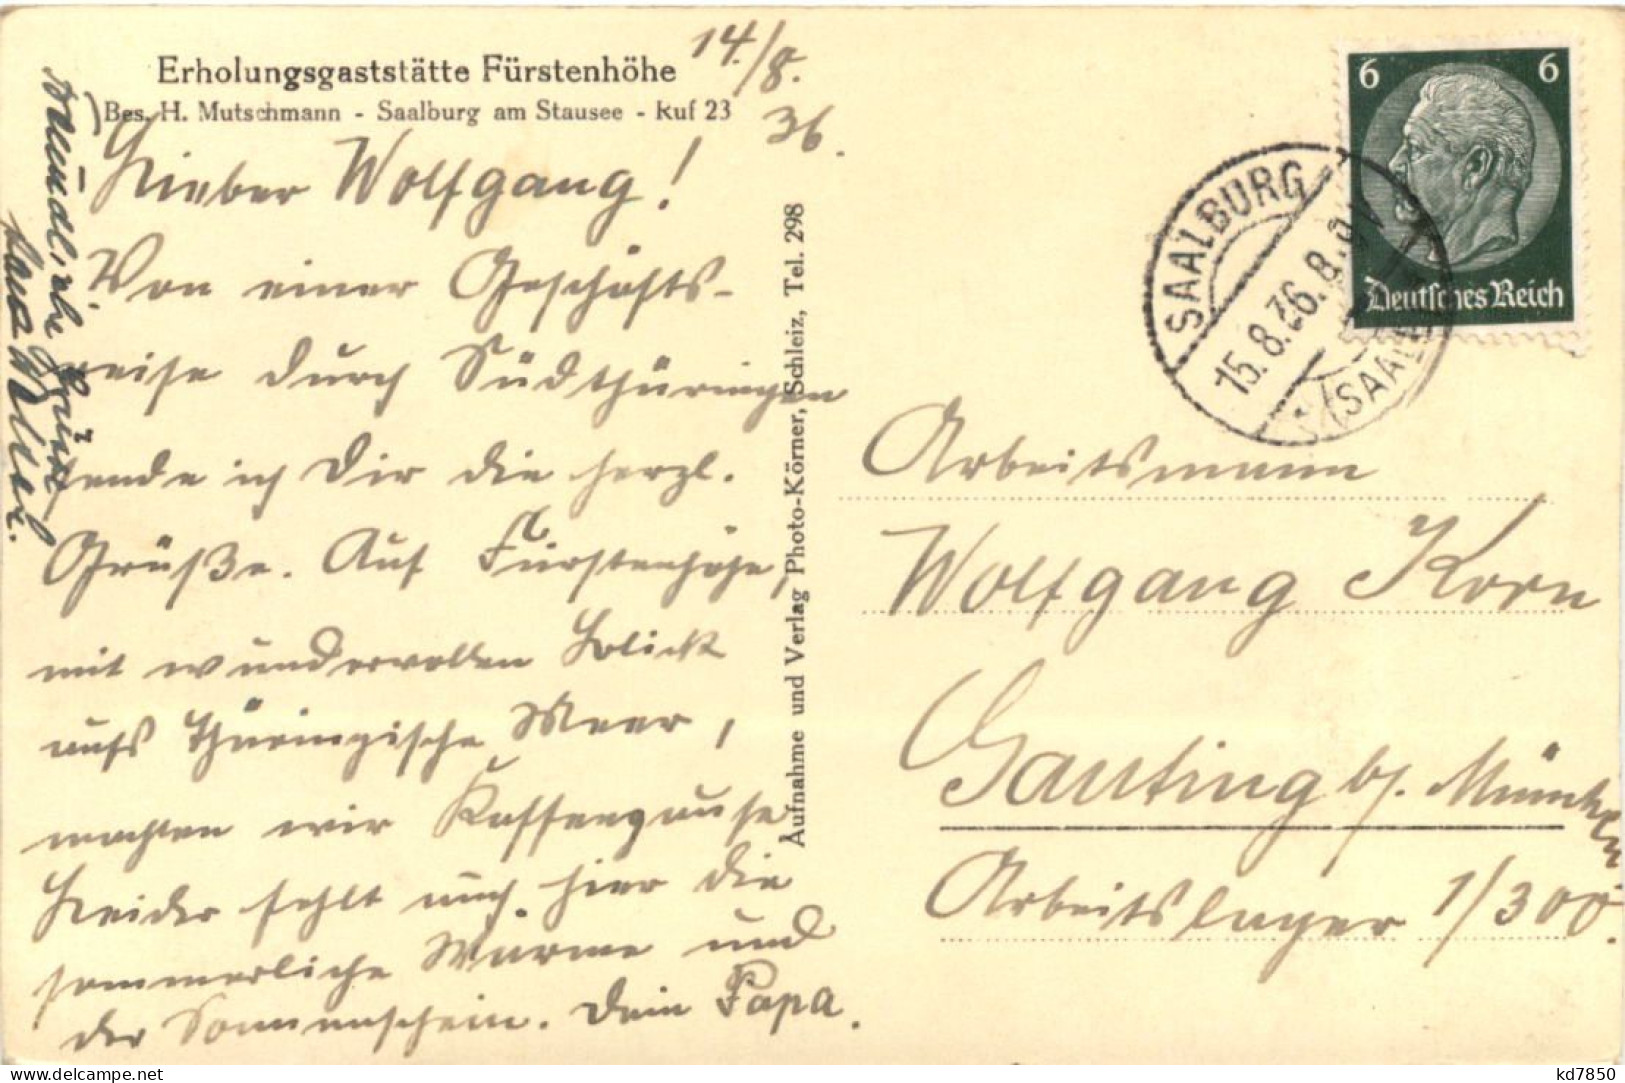 Erholungsgaststätte Fürstenhöhe
Bes. H. Mutschmann - Saalburg am Stausee - Ruf 23
14./8.
36.
Lieber Wolfgang!
Von einer Geschäfts-
reise durch Südthüringen
sende ich Dir die herzl.
Grüße. Auf Fürstenhöhe,
mit wundervollen Blick
aufs Thüringische Meer,
machten wir Kaffeepause
Leider fehlt auch hier die
sommerliche Wärme und
der Sonnenschein. Dein Papa.
Freundliche Grüße
Aufnahme und Verlag Photo-Körner, Schleiz, Tel. 298
6 6
Deutsches Reich
SAALBURG
15.8.36.8-9
(SAALE)
Arbeitsmann
Wolfgang Korn
Gauting b/. München
Arbeitslager 1/300.
kd7850